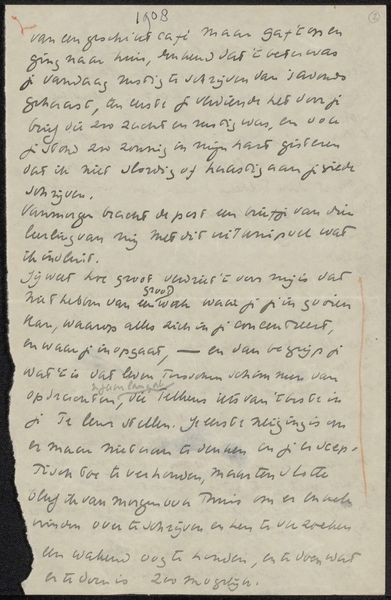 1908
van een geschikt café maar gaf 't op en
ging naar huis, denkend dat 't beter was
je vandaag rustig te schrijven dan 's avonds
gehaast, ten eerste je verdiende het door je
brief die zoo zacht en rustig was, en ook
je stond zoo zonnig in mijn hart gisteren
dat ik niet slordig of haastig aan je wilde
schrijven.
Vanmorgen bracht de post een briefje van die
leerling van mij met dit uitknipsel wat
ik insluit.
Jij weet hoe groot verdriet 't voor mij is dat
niet hebben van een groot werk waar je je in gooien
kan, waarop alles zich in je concentreert,
en waar je in opgaat, — en dan begrijp je
wat 't is dat leven tusschen schimmen van
opdrachten, die telkens iets van
je te leur stellen. Je eerste neiging is om
er maar niet aan te denken en je
toe te verhouden, maar ten slotte
bleef ik vanmorgen thuis om er
vrienden over te schrijven en hen te verzoeken
een wakend oog te houden, en te doen wat
er te doen is zoo mogelijk.